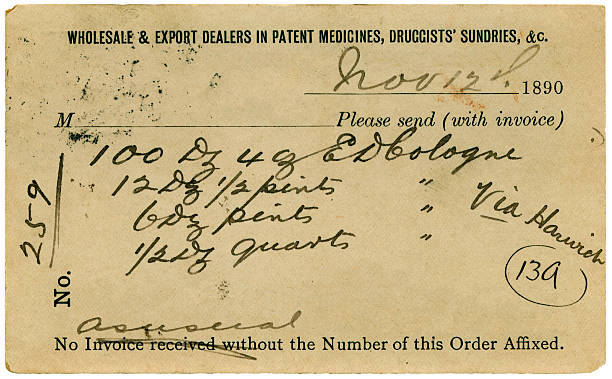 WHOLESALE & EXPORT DEALERS IN PATENT MEDICINES, DRUGGISTS' SUNDRIES, &c.
Nov 12th 1890
M Please send (with invoice)
100 Dz 4 oz E D Cologne
12 Dz 1/2 pints "
6 Dz pints "
1/2 Dz quarts "
Via Harwich
139
No. 259
as usual
No Invoice received without the Number of this Order Affixed.